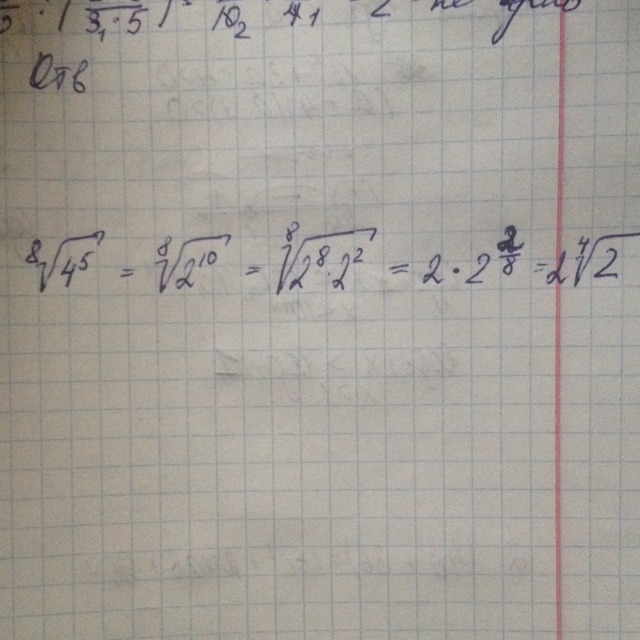 5 · ( 3₁·5 ) = 10₂ · 4₁ = 2 - не
Отв
⁸√4⁵ = ⁸√2¹⁰ = ⁸√2⁸·2² = 2·2^(2/8) = 2⁴√2